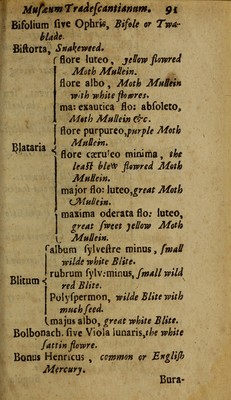 Musæum Tradescantianum. 91
Bifolium sive Ophris, Bifole or Twa-
blade.
Bistorta, Snakeweed.
flore luteo, yellow flowred
Moth Mullein.
flore albo, Moth Mullein
with white flowres.
ma: exautica flo: absoleto,
Moth Mullein &c.
flore purpureo, purple Moth
Mullein.
Blataria
flore cæruleo minima, the
least blew flowred Moth
Mullein.
major flo: luteo, great Moth
Mullein.
maxima oderata flo: luteo,
great sweet yellow Moth
Mullein.
album sylvestre minus, small
wilde white Blite.
rubrum sylv: minus, small wild
red Blite.
Blitum
Polyspermon, wilde Blite with
much seed.
majus albo, great white Blite.
Bolbonach. sive Viola lunaris, the white
sattin flowre.
Bonus Henricus, common or English
Mercury.
Bura-